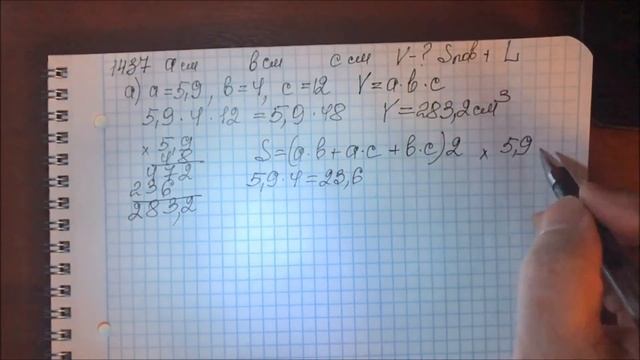 1437 a см в см с см V-? Sпов + L
а) a=5,9, в=4, с=12 V=a·в·с
5,9·4·12=5,9·48 V=283,2см³
× 5,9
48
472
236
283,2
S=(a·в+a·с+в·с)2 × 5,9
5,9·4=23,6